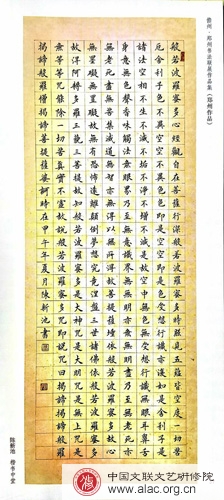 州·郑州书法联展作品集（郑州作品）
般若波羅蜜多心經觀自在菩薩行深般若波羅蜜多時照見五蘊皆空度一切苦
厄舍利子色不異空空不異色色即是空空即是色受想行識亦復如是舍利子是
諸法空相不生不滅不垢不淨不增不減是故空中無色無受想行識無眼耳鼻舌
身意無色聲香味觸法無眼界乃至無意識界無無明亦無無明盡乃至無老死亦
無老死盡無苦集滅道無智亦無得以無所得故菩提薩埵依般若波羅蜜多故心
無罣礙無罣礙故無有恐怖遠離顛倒夢想究竟涅槃三世諸佛依般若波羅蜜多
故得阿耨多羅三藐三菩提故知般若波羅蜜多是大神咒是大明咒是無上咒是
無等等咒能除一切苦真實不虛故說般若波羅蜜多咒即說咒曰揭諦揭諦般羅
揭諦般羅僧揭諦菩提薩婆訶時在甲午年夏月陳新池書
陈新池 楷书中堂
中国文联文艺研修院
www.alac.org.cn